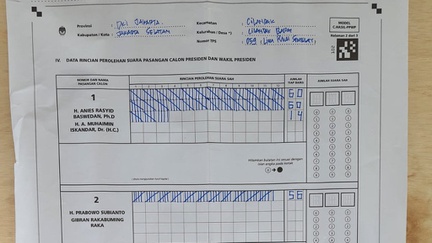 MODEL
C.HASIL-PPWP
Provinsi : DKI JAKARTA
Kecamatan : CILANDAK
Kabupaten / Kota : JAKARTA SELATAN
Kelurahan / Desa *) : CILANDAK BARAT
Nomor TPS
Halaman 2 dari 3
IV. DATA RINCIAN PEROLEHAN SUARA PASANGAN CALON PRESIDEN DAN WAKIL PRESIDEN
NOMOR DAN NAMA
PASANGAN CALON
RINCIAN PEROLEHAN SUARA SAH
JUMLAH
TIAP BARIS
JUMLAH SUARA SAH
1
H. ANIES RASYID
BASWEDAN, Ph.D
H. A. MUHAIMIN
ISKANDAR, Dr. (H.C.)
60
60
14
2
H. PRABOWO SUBIANTO
GIBRAN RAKABUMING
RAKA
56